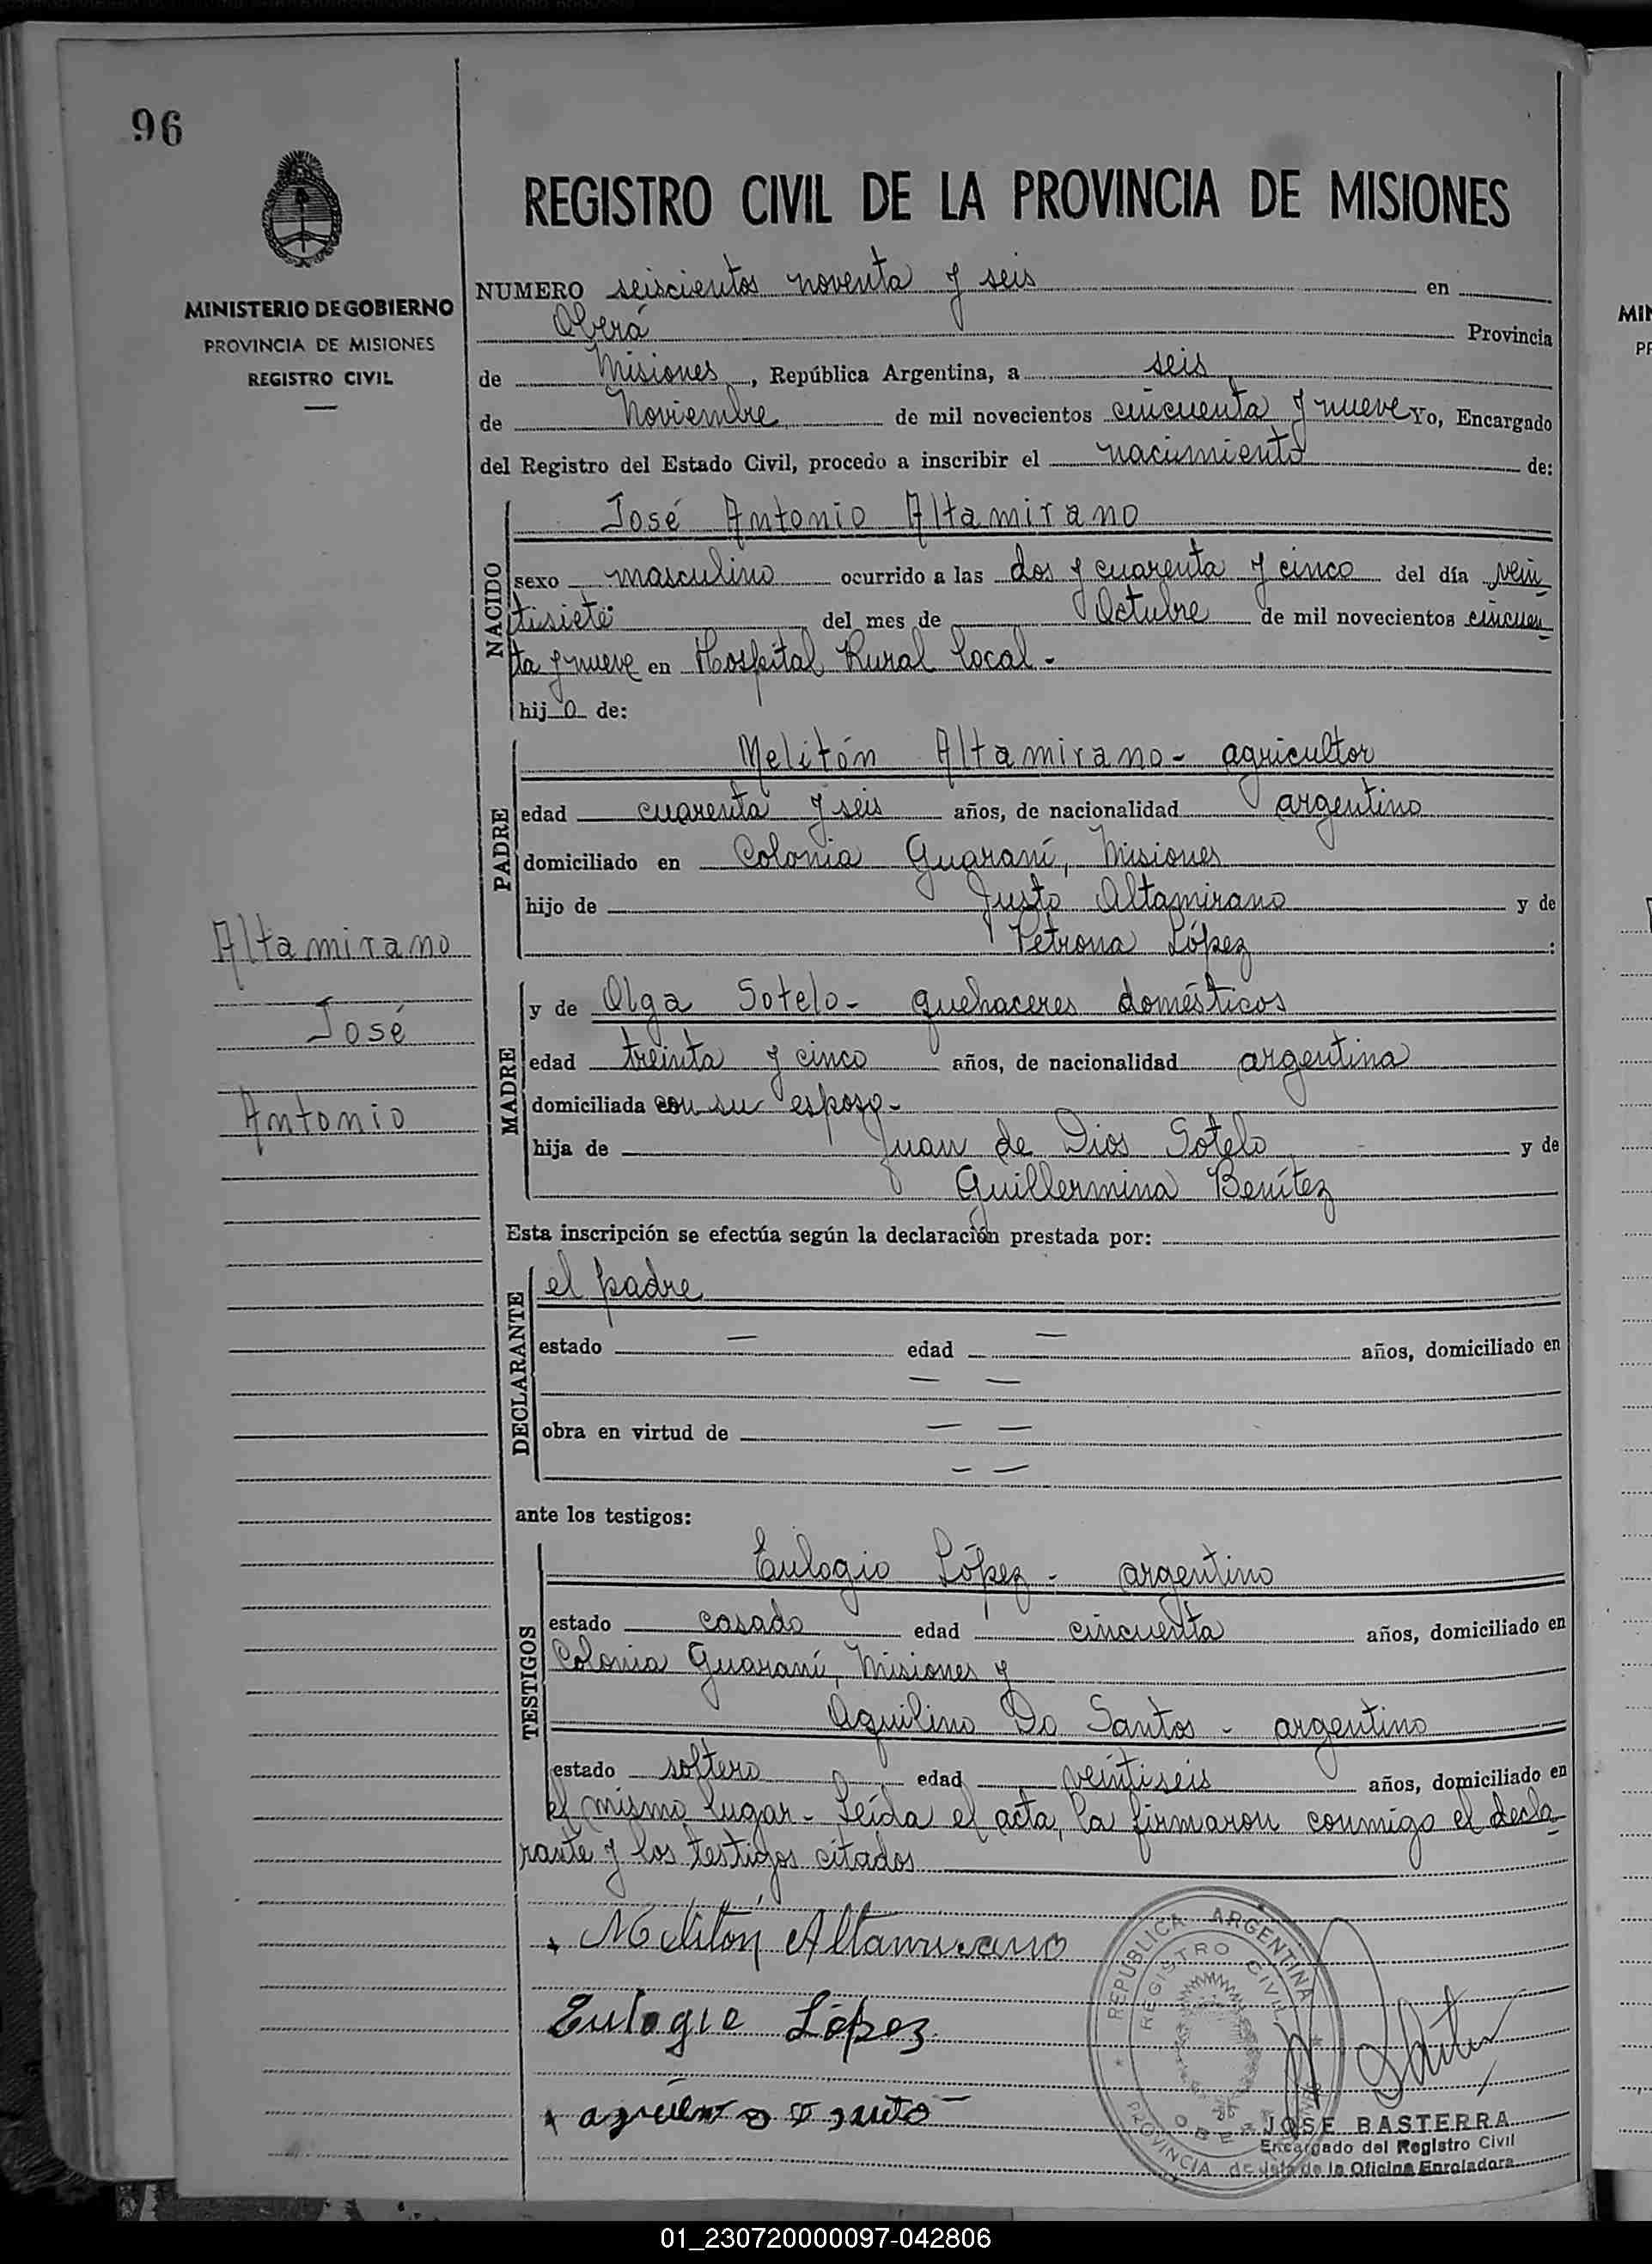 96
MINISTERIO DE GOBIERNO
PROVINCIA DE MISIONES
REGISTRO CIVIL
REGISTRO CIVIL DE LA PROVINCIA DE MISIONES
NUMERO seiscientos noventa y seis en
Oberá Provincia
de Misiones, República Argentina, a seis
de Noviembre de mil novecientos cincuenta y nueve Yo, Encargado
del Registro del Estado Civil, procedo a inscribir el nacimiento de:
NACIDO
José Antonio Altamirano
sexo masculino ocurrido a las dos y cuarenta y cinco del día vein
tisiete del mes de Octubre de mil novecientos cincuen
ta y nueve en Hospital Rural local.-
hijo de:
PADRE
Melitón Altamirano- agricultor
edad cuarenta y seis años, de nacionalidad argentino
domiciliado en Colonia Guaraní, Misiones
hijo de Justo Altamirano y de
Petrona López:
Altamirano
José
Antonio
MADRE
y de Olga Sotelo- quehaceres domésticos
edad treinta y cinco años, de nacionalidad argentina
domiciliada con su esposo-
hija de Juan de Dios Sotelo y de
Guillermina Benítez
Esta inscripción se efectúa según la declaración prestada por:
DECLARANTE
el padre
estado — edad — años, domiciliado en
— —
obra en virtud de — —
— —
ante los testigos:
TESTIGOS
Eulogio López- argentino
estado casado edad cincuenta años, domiciliado en
Colonia Guaraní, Misiones y
Aquilino Do Santos - argentino
estado soltero edad veintiseis años, domiciliado en
el mismo lugar- Leída el acta, la firmaron conmigo el decla
rante y los testigos citados
Melitón Altamirano
Eulogio López
REPUBLICA ARGENTINA
REGISTRO CIVIL
OBERA
PROVINCIA de
JOSE BASTERRA
Encargado del Registro Civil
Jefe de la Oficina Enroladora
01_230720000097-042806